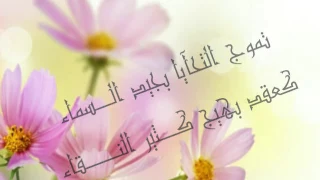 تموج التحآيا بجيد الـسماء
كعقد بهيج كـثير النـقاء